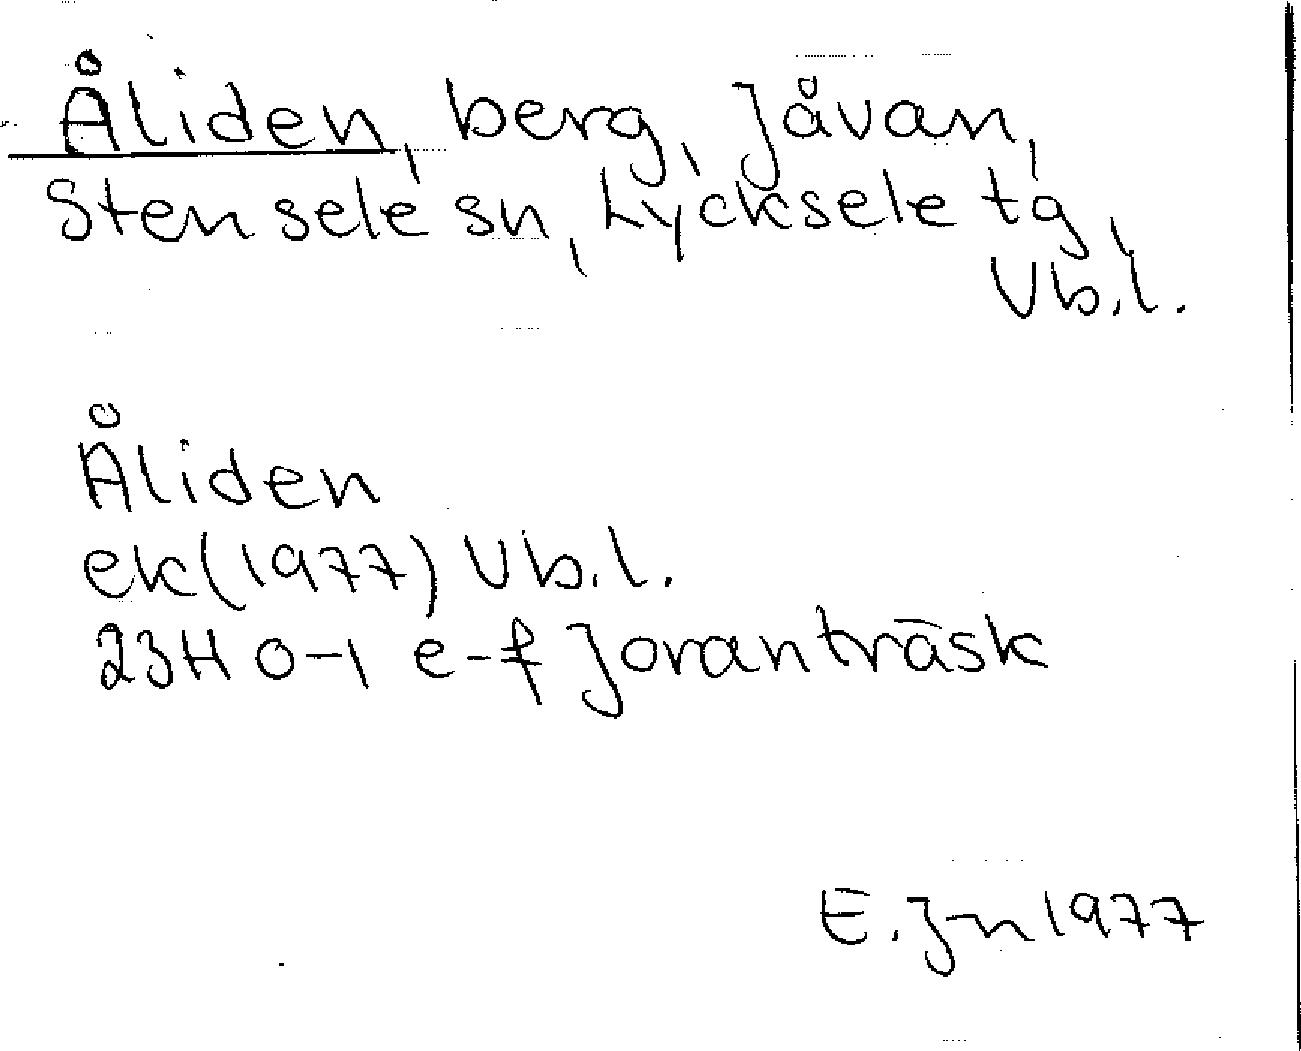 Åliden, berg, Jåvan,
Stensele sn, Lycksele tg,
Vb.l.
Åliden
ek(1977) Vb.l.
23H 0-1 e-f Joranträsk
E.Jn 1977